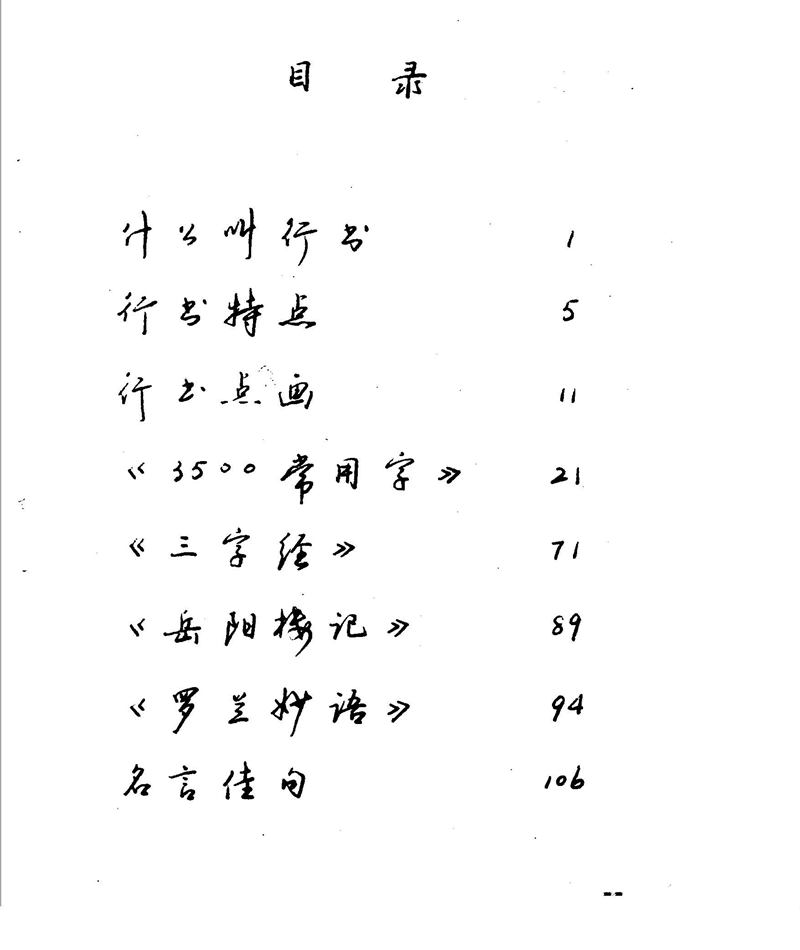 目 录
什么叫行书 1
行书特点 5
行书点画 11
《3500常用字》 21
《三字经》 71
《岳阳楼记》 89
《罗兰妙语》 94
名言佳句 106